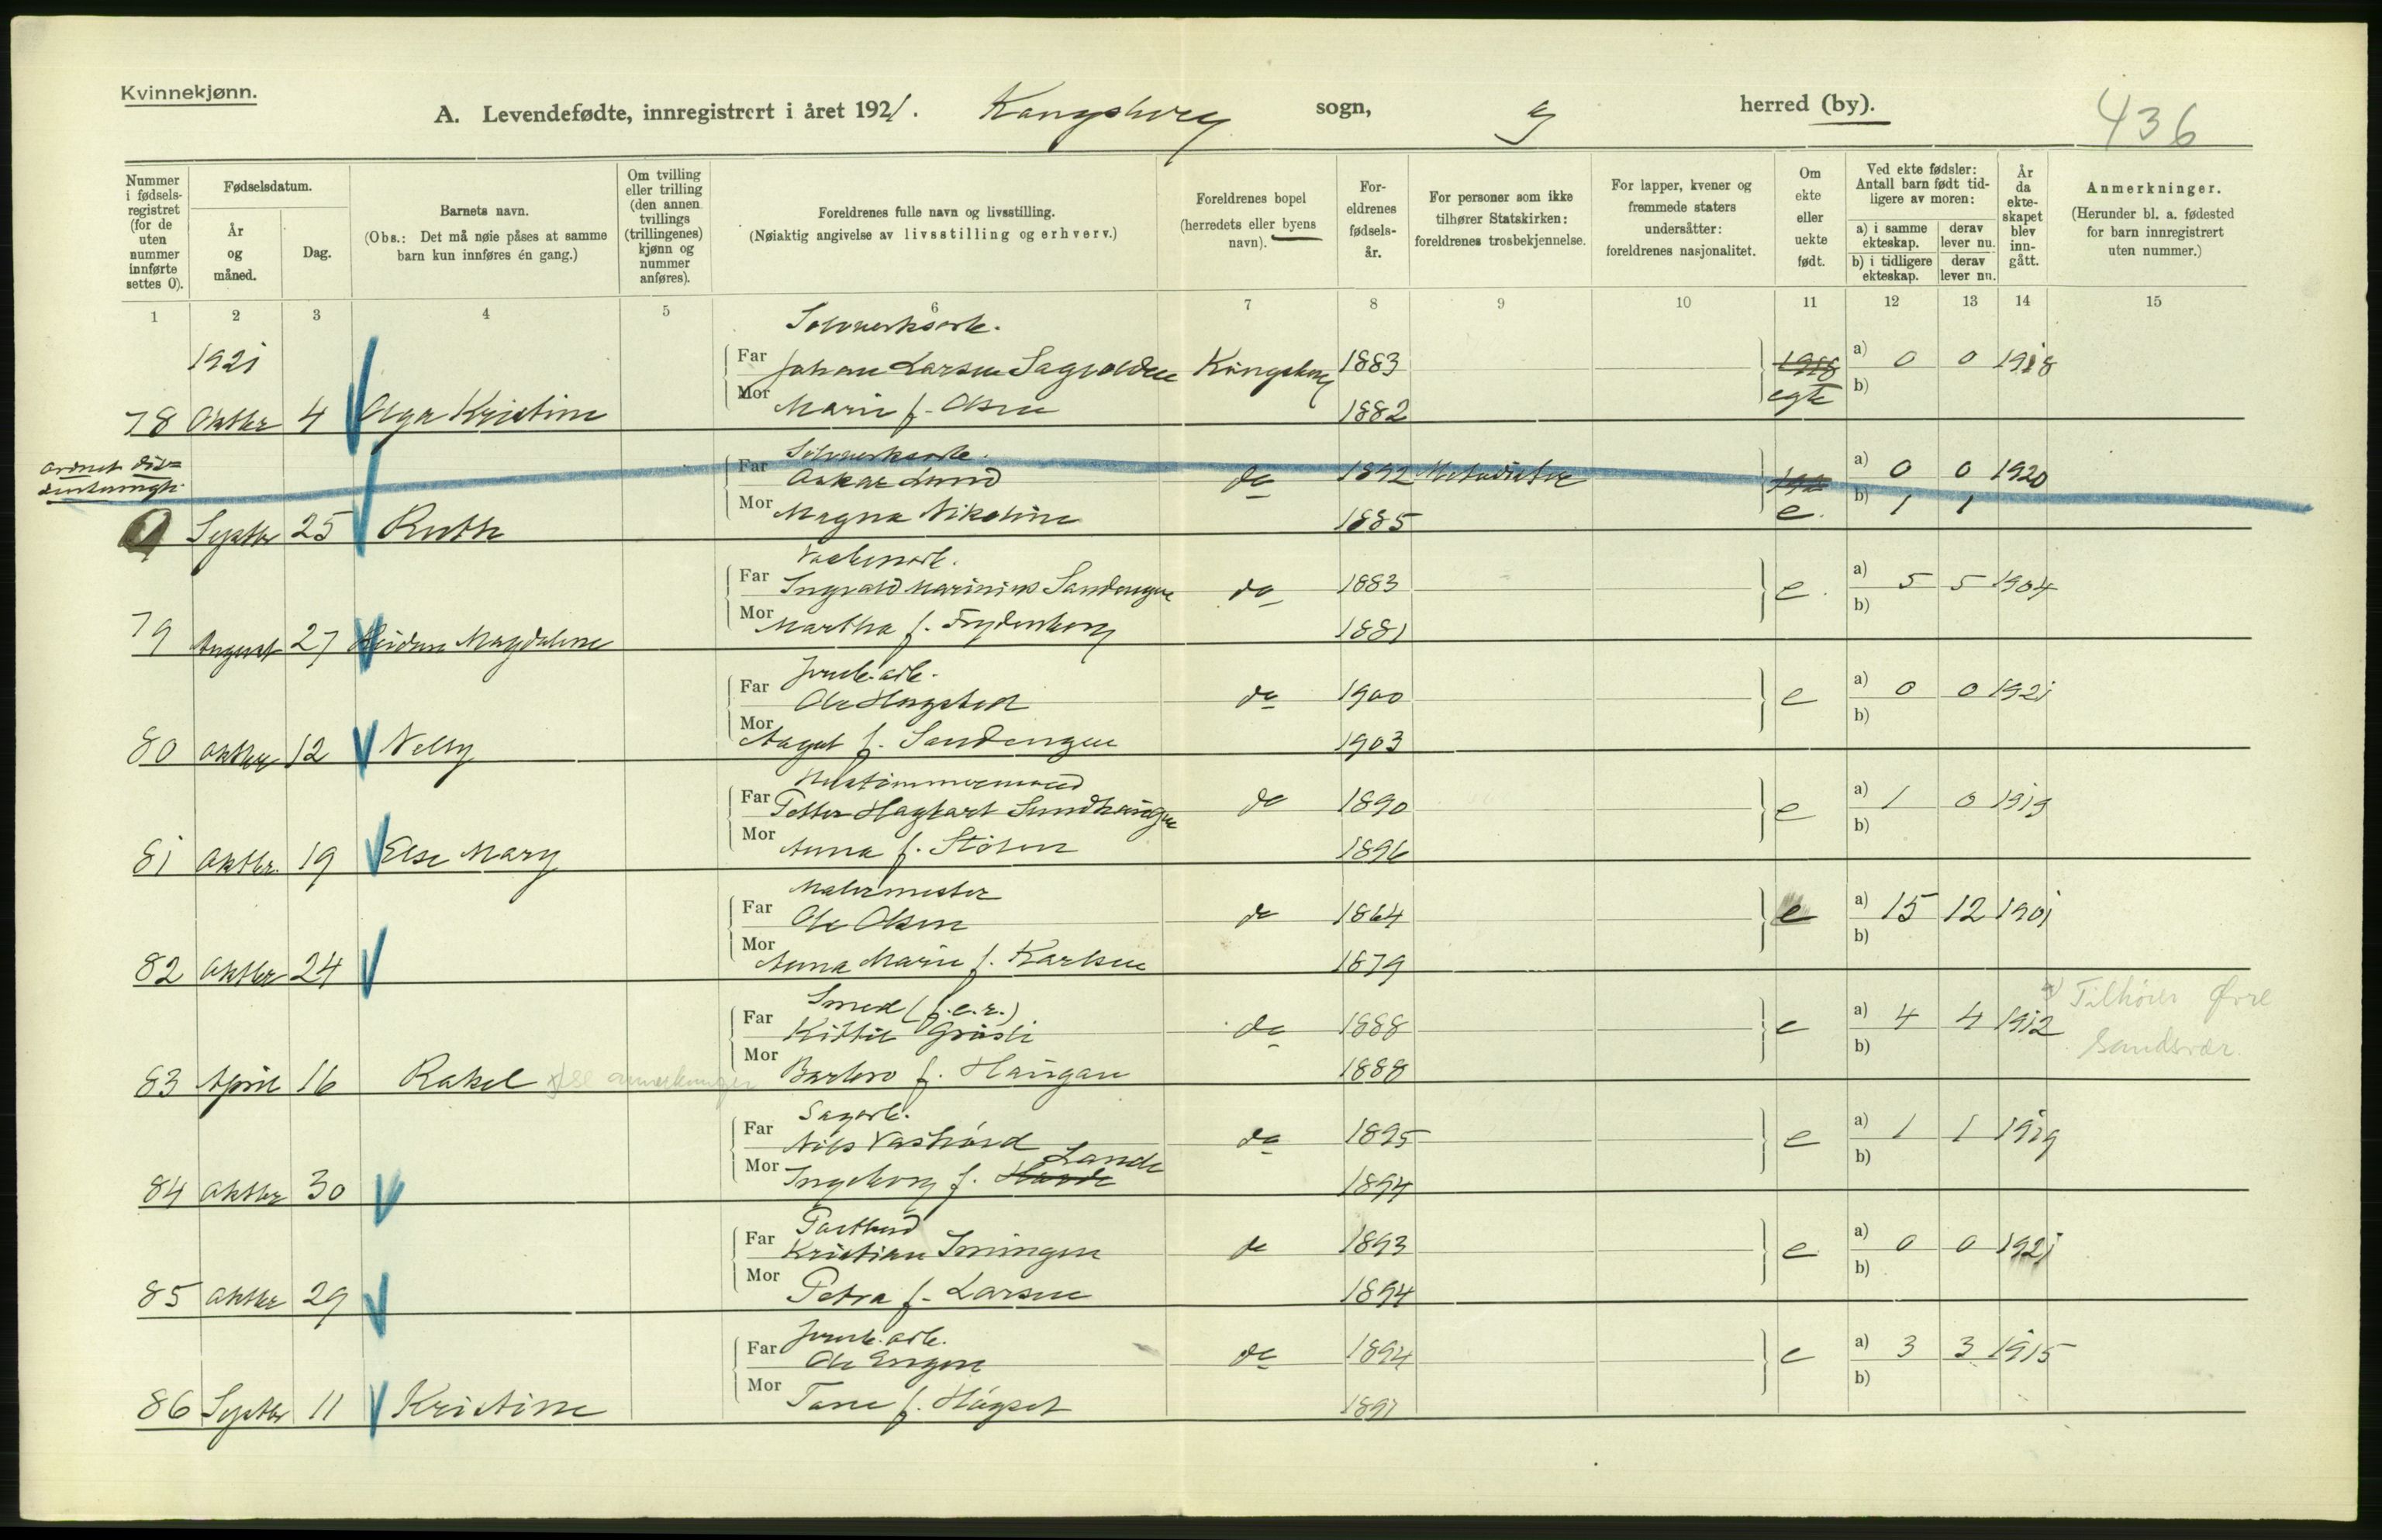 Kvinnekjønn.
A. Levendefødte, innregistrert i året 1921. Kongsberg sogn, herred (by). 436
Nummer i fødselsregistret (for de uten nummer innførte settes 0).
Fødselsdatum.
År og måned.
Dag.
Barnets navn.
(Obs.: Det må nøie påses at samme barn kun innføres én gang.)
Om tvilling eller trilling (den annen tvillings (trillingenes) kjønn og nummer anføres).
Foreldrenes fulle navn og livsstilling.
(Nøiaktig angivelse av livsstilling og erhverv.)
Foreldrenes bopel (herredets eller byens navn).
Foreldrenes fødselsår.
For personer som ikke tilhører Statskirken: foreldrenes trosbekjennelse.
For lapper, kvener og fremmede staters undersåtter: foreldrenes nasjonalitet.
Om ekte eller uekte født.
Ved ekte fødsler: Antall barn født tidligere av moren:
a) i samme ekteskap. derav lever nu.
b) i tidligere ekteskap. derav lever nu.
År da ekteskapet blev inngått.
Anmerkninger.
(Herunder bl. a. fødested for barn innregistrert uten nummer.)
1 2 3 4 5 6 7 8 9 10 11 12 13 14 15
1921
Sølvverksarb.
Far Johan Larsen Sagvolden Kongsberg 1883 1918 a) 0 0 1918
78 Oktbr 4 Olga Kristine Mor Marie f. Olsen 1882 egte b)
Sølvverksarb.
Far Oskar Lund do 1892 Metodister a) 0 0 1920
0 Septbr 25 Ruth Mor Magna Nikoline 1885 e. b) 1 1
Far Ingvald Marinius Sandengen do 1883 e. a) 5 5 1904
79 August 27 Magdalene Mor Martha f. Frydenberg 1881 b)
Far Ole Hagstedt do 1900 e a) 0 0 1921
80 Oktbr 12 Nelly Mor Aagot f. Sandengen 1903 b)
Far Petter Hagbart do 1890 e a) 1 0 1919
81 Oktbr. 19 Else Mary Mor Anna f. Stølen 1896 b)
Malermester
Far Ole Olsen do 1864 e a) 15 12 1901
82 Oktbr 24 Mor Anna Marie f. Karlsen 1879 b)
Smed (f.e.r.)
Far Kittil Gråsli do 1888 e a) 4 4 1912 x) Tilhører Øvre Sandsvær.
83 April 16 Rakel x) se anmerkninger Mor Barbro f. Haugan 1888 b)
Sagarb.
Far Nils do 1895 e a) 1 1 1919
84 Oktbr 30 Mor Ingeborg f. Lande 1894 b)
Postbud
Far Kristian do 1893 e a) 0 0 1921
85 Oktbr 29 Mor Petra f. Larsen 1894 b)
Far Ole Engen do 1894 e a) 3 3 1915
86 Septbr 11 Kristine Mor f. 1891 b)